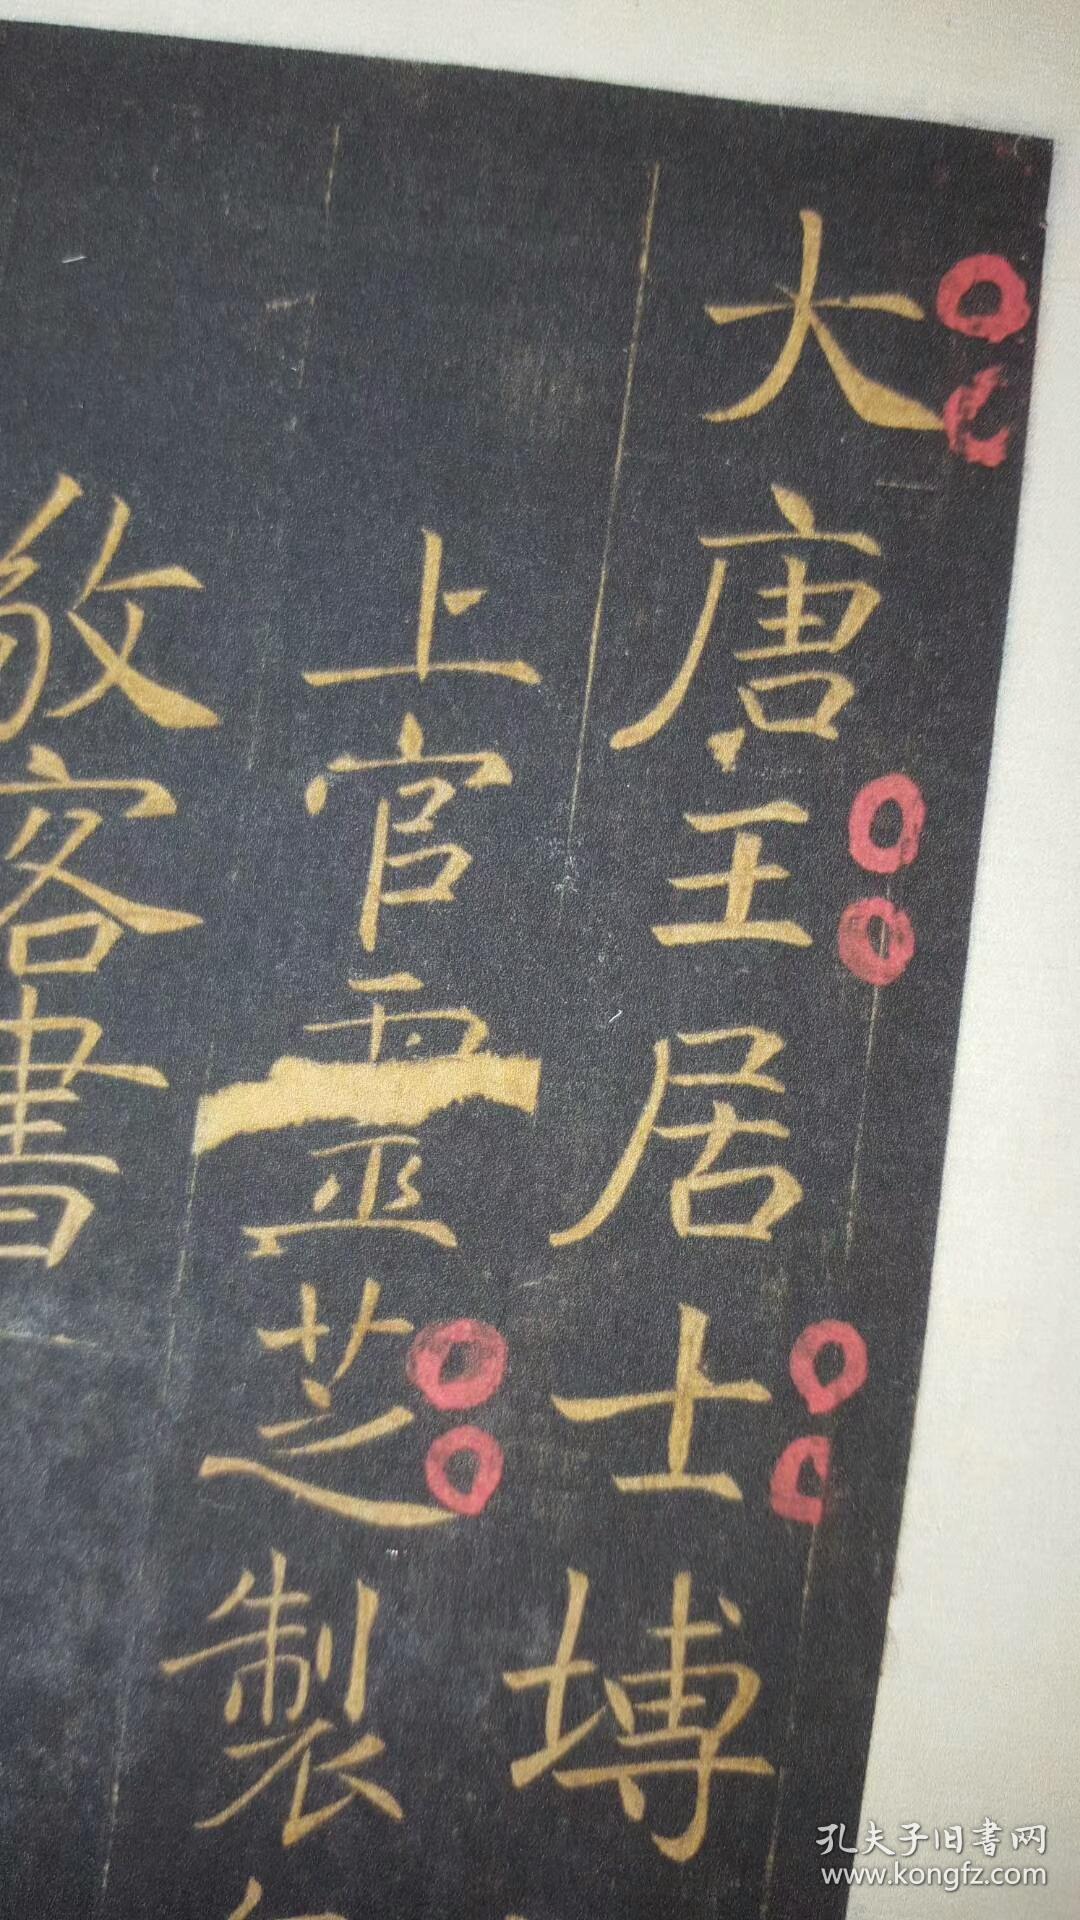 大唐王居士塼
上官靈芝製
敬客書
孔夫子旧書网
www.kongfz.com